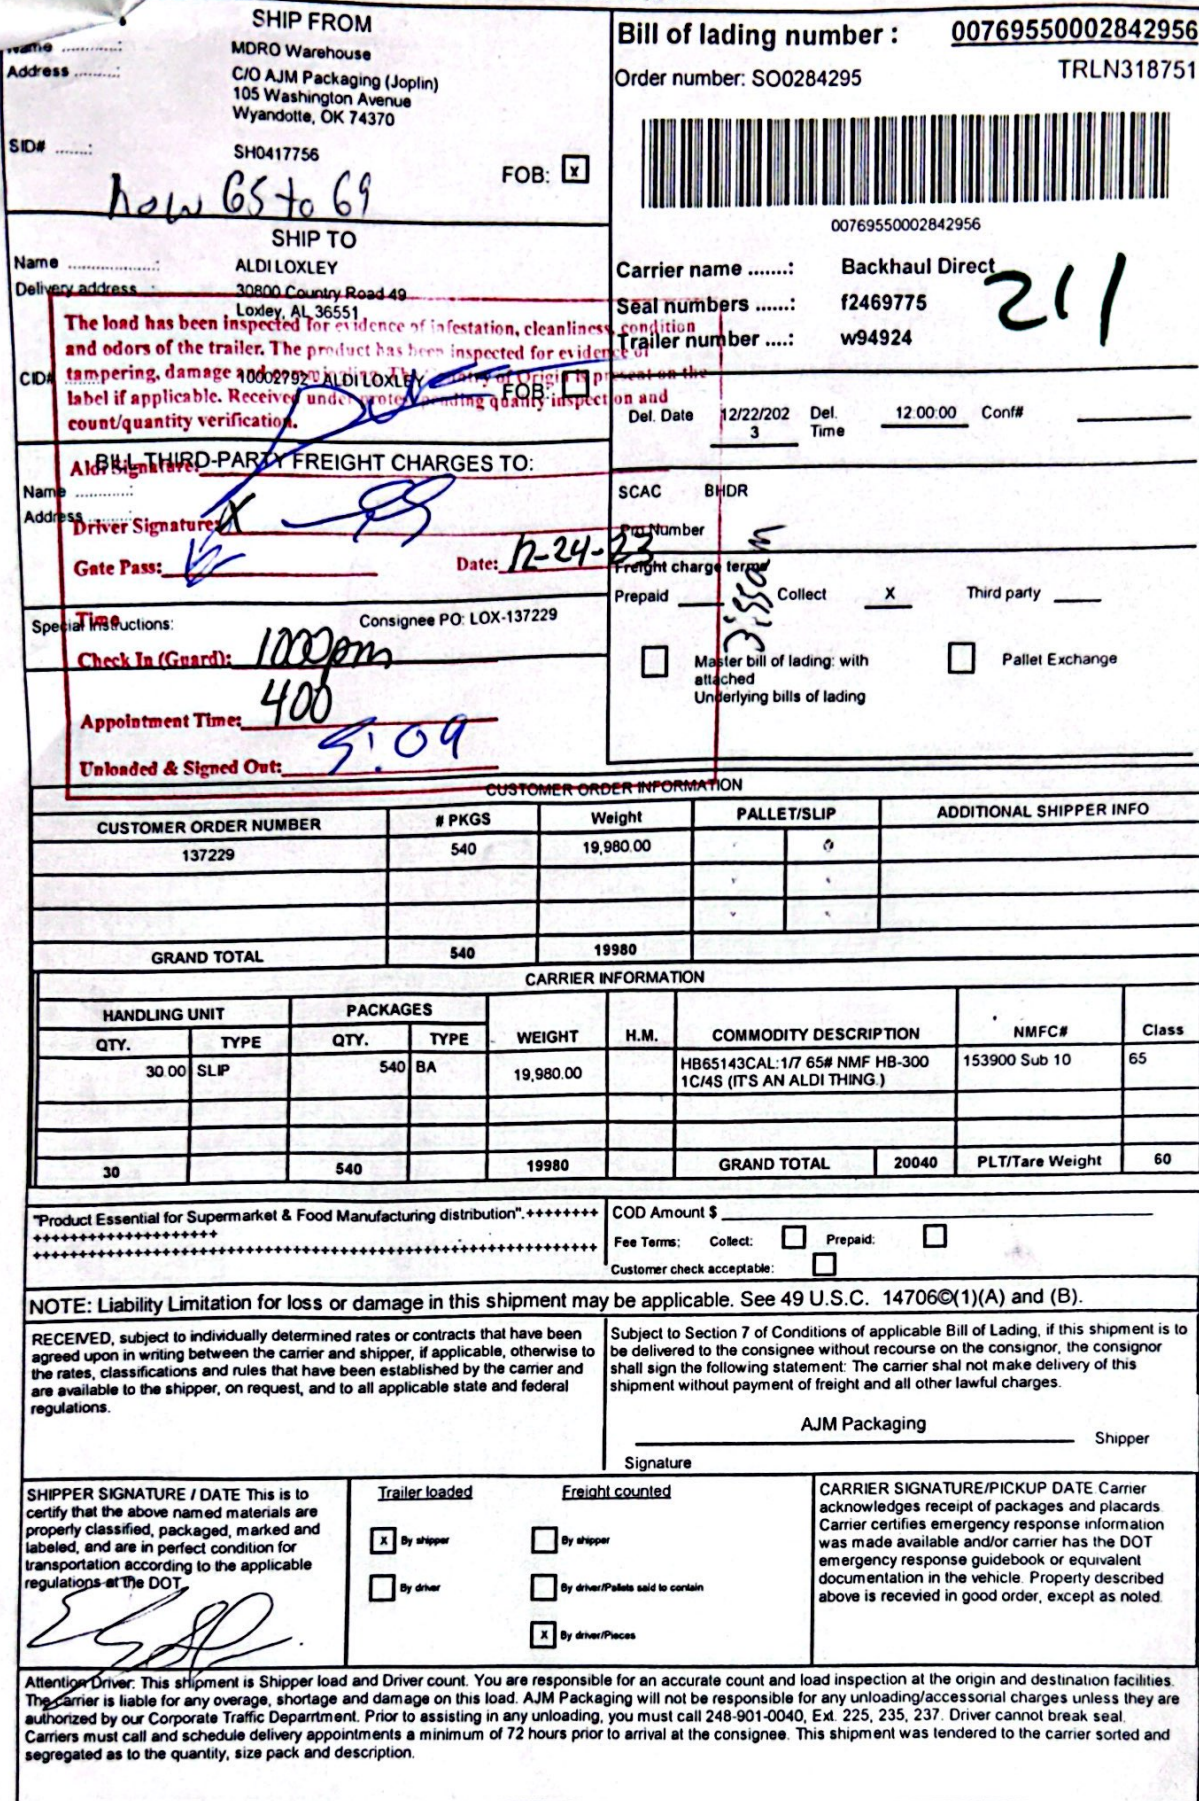 SHIP FROM
Name ............:
MDRO Warehouse
Address .........:
C/O AJM Packaging (Joplin)
105 Washington Avenue
Wyandotte, OK 74370
SID# .......:
SH0417756
FOB: x
now 65 to 69
Bill of lading number : 00769550002842956
Order number: SO0284295
TRLN318751
00769550002842956
SHIP TO
Name ....................:
ALDI LOXLEY
Delivery address ..:
30800 Country Road 49
Loxley, AL 36551
CID#
10002792 - ALDI LOXLEY
FOB:
Carrier name .......: Backhaul Direct
Seal numbers ......: f2469775
Trailer number ....: w94924
211
The load has been inspected for evidence of infestation, cleanliness, condition
and odors of the trailer. The product has been inspected for evidence of
tampering, damage and Country of Origin is present on the
label if applicable. Received under protest pending quality inspection and
count/quantity verification.
Aldi Signature:
Driver Signature: X
Gate Pass:
Date: 12-24-23
Time
Check In (Guard): 1000pm
Appointment Time: 400
Unloaded & Signed Out: 5:09
Del. Date 12/22/2023
Del. Time 12:00:00
Conf#
BILL THIRD-PARTY FREIGHT CHARGES TO:
Name ............:
Address
SCAC BHDR
Pro Number
Freight charge terms
Prepaid
Collect X
Third party
Special Instructions:
Consignee PO: LOX-137229
Master bill of lading: with
attached
Underlying bills of lading
Pallet Exchange
CUSTOMER ORDER INFORMATION
CUSTOMER ORDER NUMBER # PKGS Weight PALLET/SLIP ADDITIONAL SHIPPER INFO
137229 540 19,980.00
GRAND TOTAL 540 19980
CARRIER INFORMATION
HANDLING UNIT PACKAGES
QTY. TYPE QTY. TYPE WEIGHT H.M. COMMODITY DESCRIPTION NMFC# Class
30.00 SLIP 540 BA 19,980.00 HB65143CAL:1/7 65# NMF HB-300 153900 Sub 10 65
1C/4S (IT'S AN ALDI THING.)
30 540 19980 GRAND TOTAL 20040 PLT/Tare Weight 60
"Product Essential for Supermarket & Food Manufacturing distribution".++++++++
++++++++++++++++++++
++++++++++++++++++++++++++++++++++++++++++++++++++++++++++++++
COD Amount $
Fee Terms: Collect: Prepaid:
Customer check acceptable:
NOTE: Liability Limitation for loss or damage in this shipment may be applicable. See 49 U.S.C. 14706©(1)(A) and (B).
RECEIVED, subject to individually determined rates or contracts that have been
agreed upon in writing between the carrier and shipper, if applicable, otherwise to
the rates, classifications and rules that have been established by the carrier and
are available to the shipper, on request, and to all applicable state and federal
regulations.
Subject to Section 7 of Conditions of applicable Bill of Lading, if this shipment is to
be delivered to the consignee without recourse on the consignor, the consignor
shall sign the following statement: The carrier shal not make delivery of this
shipment without payment of freight and all other lawful charges.
AJM Packaging
Shipper
Signature
SHIPPER SIGNATURE / DATE This is to
certify that the above named materials are
properly classified, packaged, marked and
labeled, and are in perfect condition for
transportation according to the applicable
regulations at the DOT
Trailer loaded
x By shipper
By driver
Freight counted
By shipper
By driver/Pallets said to contain
X By driver/Pieces
CARRIER SIGNATURE/PICKUP DATE Carrier
acknowledges receipt of packages and placards
Carrier certifies emergency response information
was made available and/or carrier has the DOT
emergency response guidebook or equivalent
documentation in the vehicle. Property described
above is recevied in good order, except as noted.
Attention Driver: This shipment is Shipper load and Driver count. You are responsible for an accurate count and load inspection at the origin and destination facilities.
The carrier is liable for any overage, shortage and damage on this load. AJM Packaging will not be responsible for any unloading/accessorial charges unless they are
authorized by our Corporate Traffic Department. Prior to assisting in any unloading, you must call 248-901-0040, Ext. 225, 235, 237. Driver cannot break seal.
Carriers must call and schedule delivery appointments a minimum of 72 hours prior to arrival at the consignee. This shipment was tendered to the carrier sorted and
segregated as to the quantity, size pack and description.